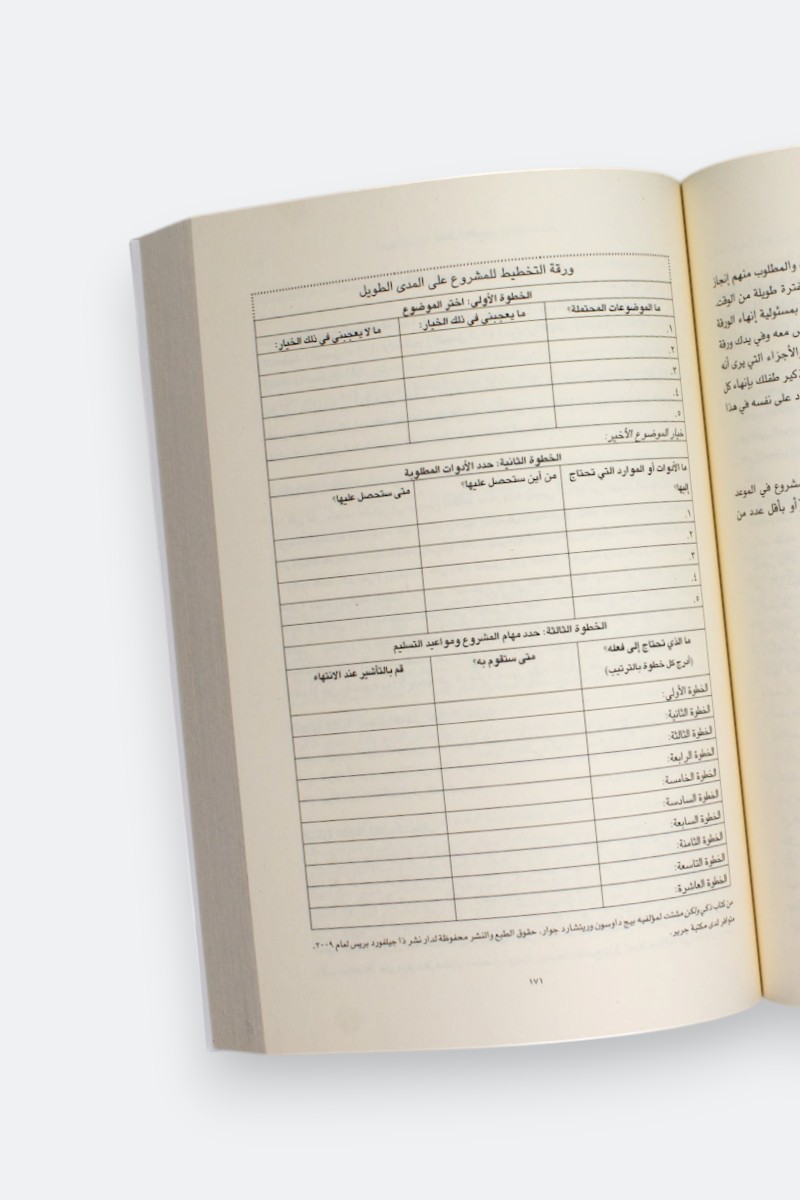 ورقة التخطيط للمشروع على المدى الطويل
الخطوة الأولى: اختر الموضوع
ما الموضوعات المحتملة؟ ما يعجبني في ذلك الخيار: ما لا يعجبني في ذلك الخيار:
١.
٢.
٣.
٤.
٥.
خيار الموضوع الأخير:
الخطوة الثانية: حدد الأدوات المطلوبة
ما الأدوات أو الموارد التي تحتاج من أين ستحصل عليها؟ متى ستحصل عليها؟
إليها؟
١.
٢.
٣.
٤.
٥.
الخطوة الثالثة: حدد مهام المشروع ومواعيد التسليم
ما الذي تحتاج إلى فعله؟ متى ستقوم به؟ قم بالتأشير عند الانتهاء
(أدرج كل خطوة بالترتيب)
الخطوة الأولى:
الخطوة الثانية:
الخطوة الثالثة:
الخطوة الرابعة:
الخطوة الخامسة:
الخطوة السادسة:
الخطوة السابعة:
الخطوة الثامنة:
الخطوة التاسعة:
الخطوة العاشرة:
من كتاب ذكي ولكن مشتت لمؤلفيه بيج داوسون وريتشارد جوار. حقوق الطبع والنشر محفوظة لدار نشر ذا جيلفورد بريس لعام ٢٠٠٩.
متوافر لدى مكتبة جرير.
١٧١
والمطلوب منهم إنجاز
فترة طويلة من الوقت
بمسئولية إنهاء الورقة
معه وفي يدك ورقة
الأجزاء التي يرى أنه
طفلك بإنهاء كل
على نفسه في هذا
في الموعد
أو بأقل عدد من